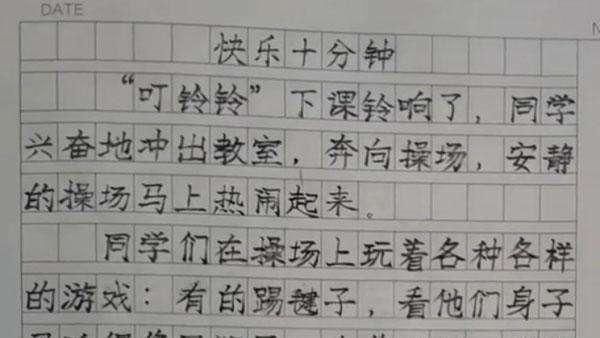 DATE
快乐十分钟
“叮铃铃”下课铃响了，同学
兴奋地冲出教室，奔向操场，安静
的操场马上热闹起来。
同学们在操场上玩着各种各样
的游戏：有的踢毽子，看他们身子